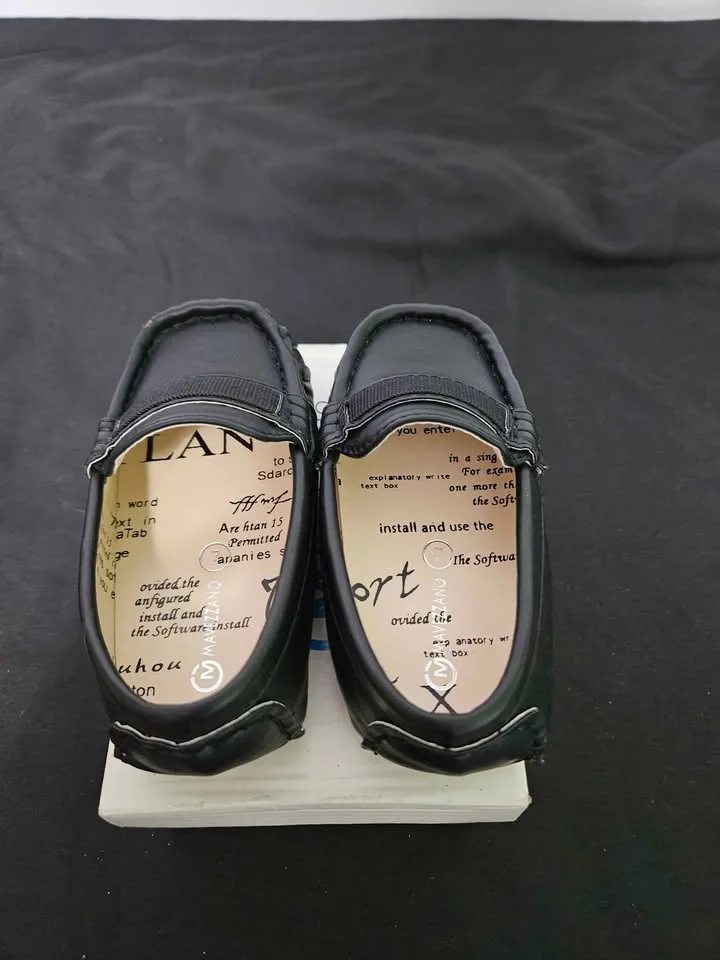 LAN
to
Sdar
word
in
aTab
Are htan 15
Permitted
ananies s
ovided the
anfigured
install and
the Software install
uhou
ton
MAVIZZANO
you enter
in a sing
For exam
explanatory write
text box
one more th
the Soft
install and use the
The Softwa
ort
ovided the
exp anatory wr
text box
X
MAVIZZANO